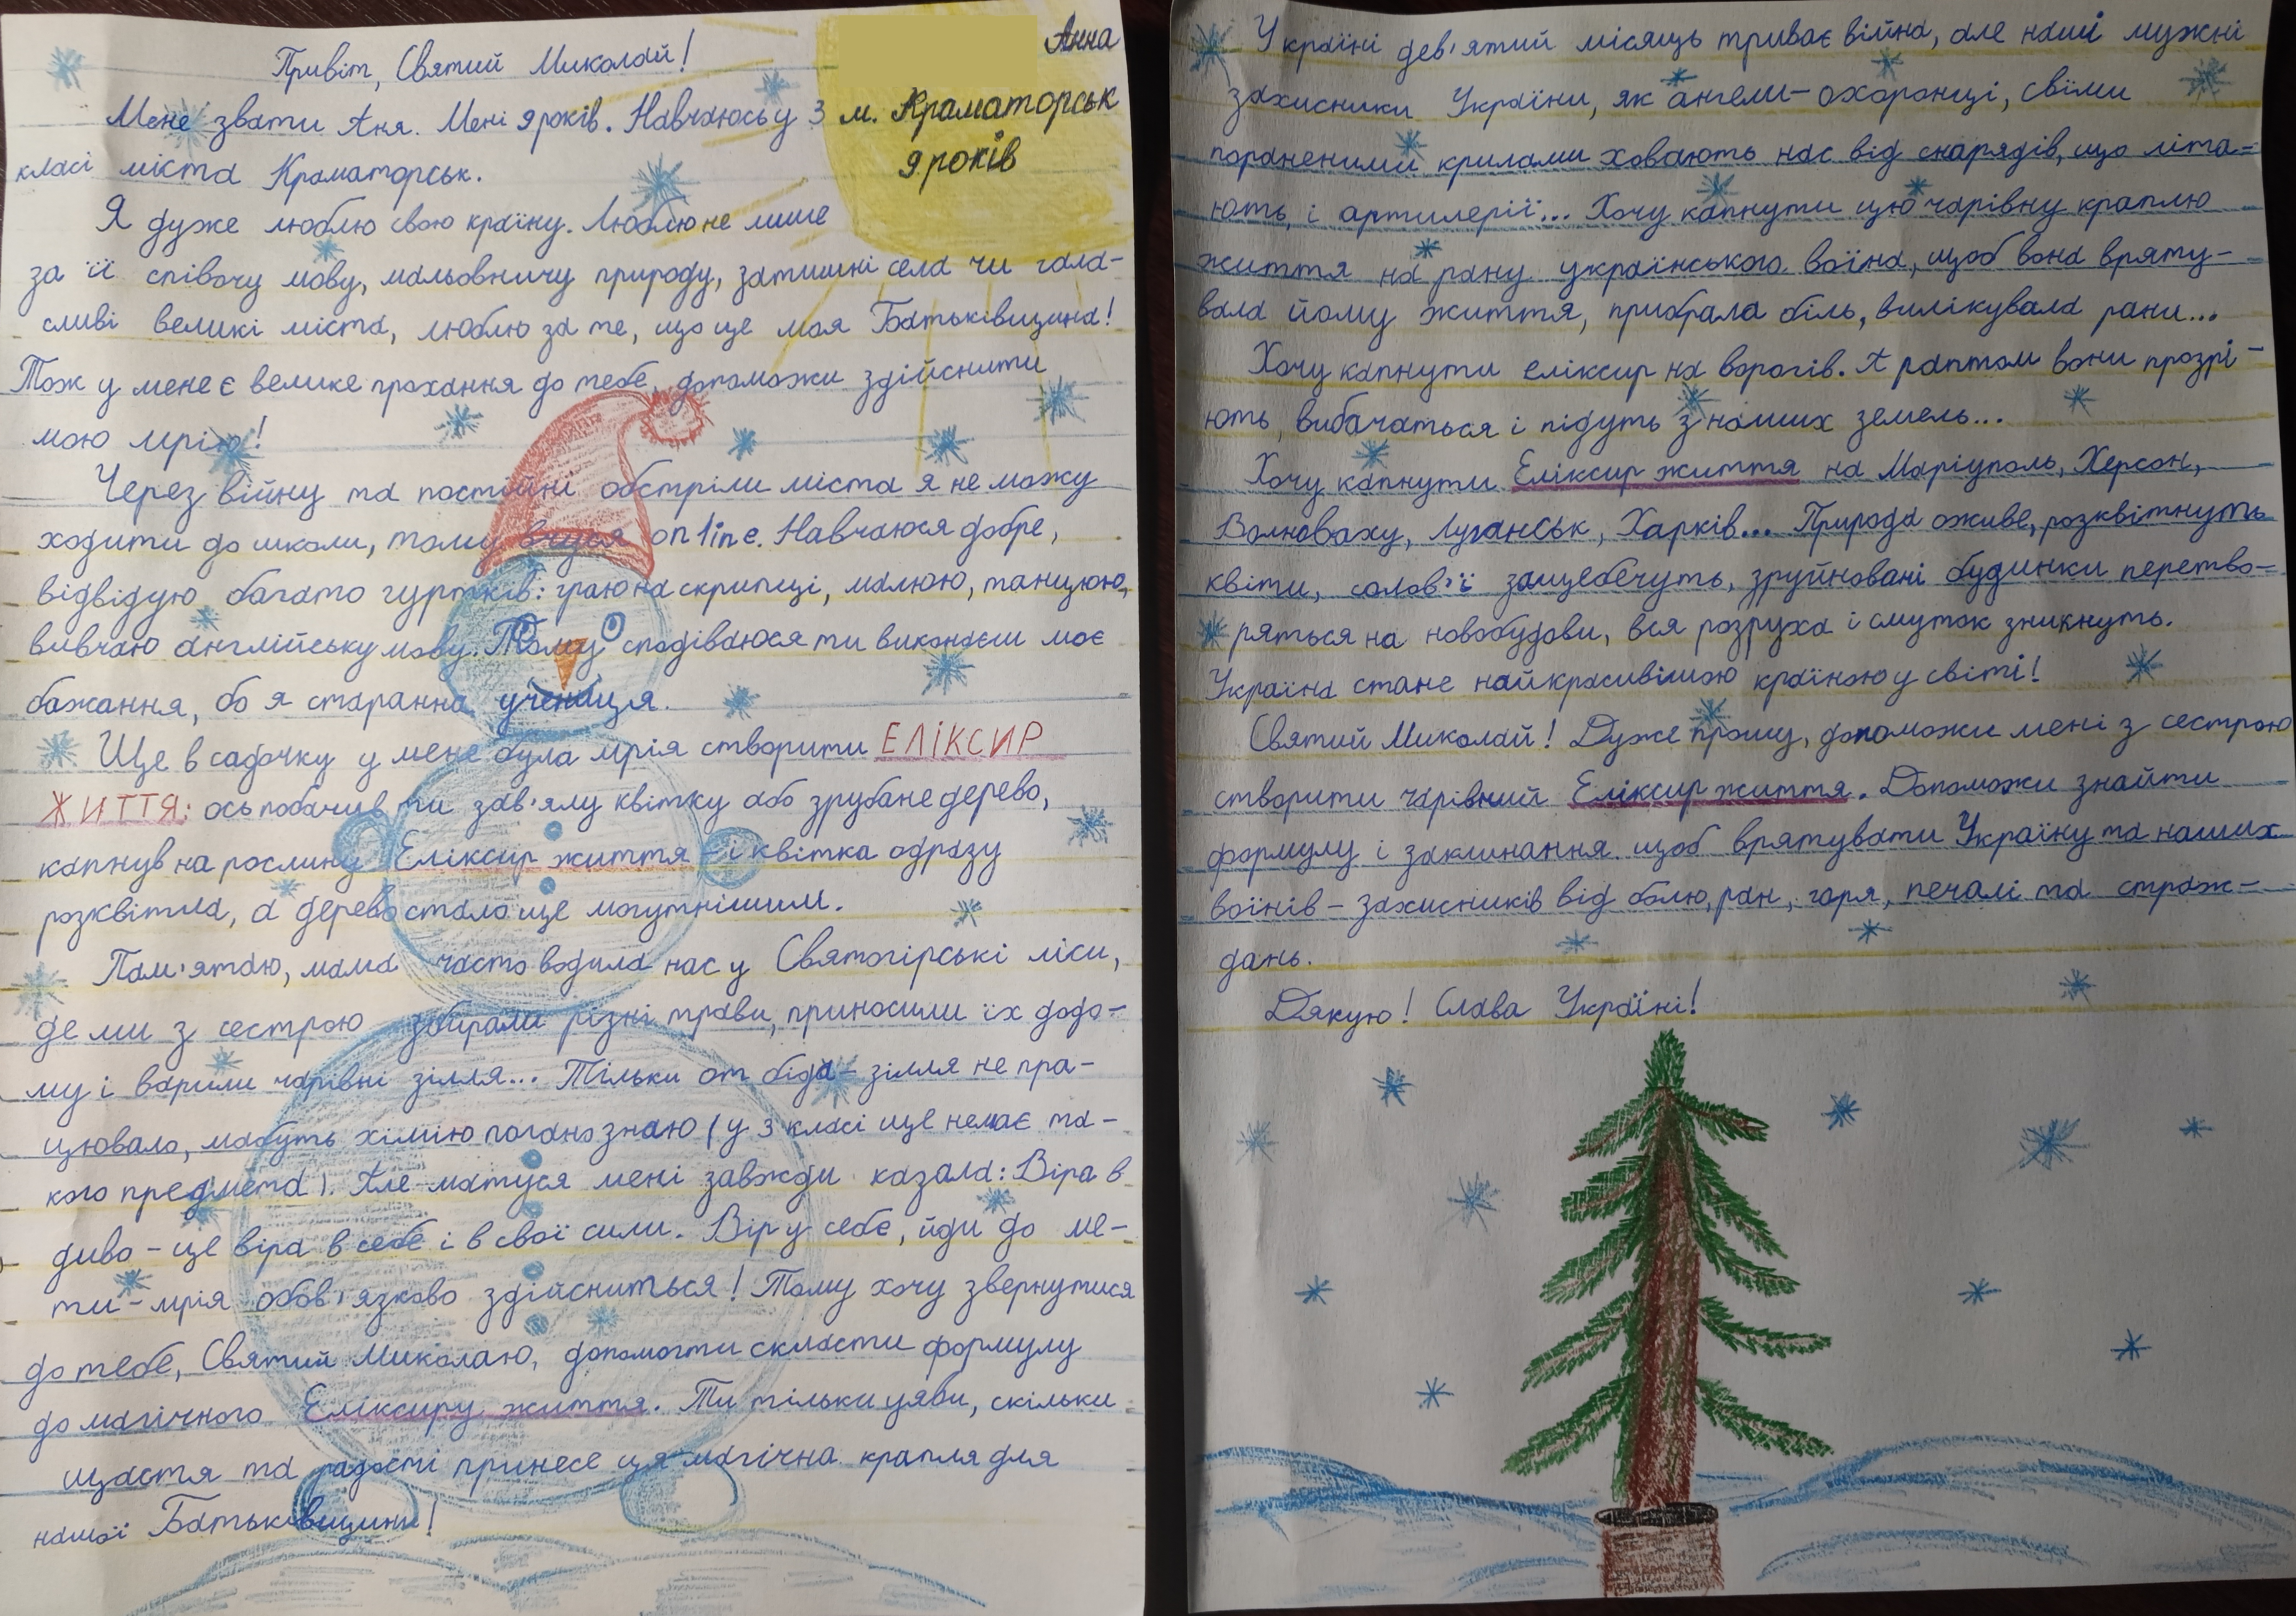 Анна
м. Краматорськ
9 років
Привіт, Святий Миколай!
Мене звати Аня. Мені 9 років. Навчаюсь у 3
класі міста Краматорськ.
Я дуже люблю свою країну. Люблю не лише
за її співочу мову, мальовничу природу, затишні села чи гала-
сливі великі міста, люблю за те, що це моя Батьківщина!
Тож у мене є велике прохання до тебе, допоможи здійснити
мою мрію!
Через війну та постійні обстріли міста я не можу
ходити до школи, тому вчуся online. Навчаюся добре,
відвідую багато гуртків: граю на скрипці, малюю, танцюю,
вивчаю англійську мову. Тому сподіваюся ти виконаєш моє
бажання, бо я старанна учениця.
Ще в садочку у мене була мрія створити ЕЛІКСИР
ЖИТТЯ: ось побачив ти зав'ялу квітку або зрубане дерево,
капнув на рослину Еліксир життя - і квітка одразу
розквітла, а дерево стало ще могутнішим.
Пам'ятаю, мама часто водила нас у Святогірські ліси,
де ми з сестрою збирали різні трави, приносили їх додо-
му і варили чарівні зілля... Тільки от біда - зілля не пра-
цювало, мабуть хімію погано знаю (у 3 класі ще немає та-
кого предмета). Але матуся мені завжди казала: Віра в
диво - це віра в себе і в свої сили. Вір у себе, йди до ме-
ти - мрія обов'язково здійсниться! Тому хочу звернутися
до тебе, Святий Миколаю, допомогти скласти формулу
до магічного Еліксиру життя. Ти тільки уяви, скільки
щастя та радості принесе ця магічна крапля для
нашої Батьківщини!
У країні дев'ятий місяць триває війна, але наші мужні
захисники України, як ангели-охоронці, своїми
пораненими крилами ховають нас від снарядів, що літа-
ють, і артилерії... Хочу капнути цю чарівну краплю
життя на рану українського воїна, щоб вона вряту-
вала йому життя, прибрала біль, вилікувала рани...
Хочу капнути еліксир на ворогів. А раптом вони прозрі-
ють, вибачаться і підуть з наших земель...
Хочу капнути Еліксир життя на Маріуполь, Херсон,
Волноваху, Луганськ, Харків... Природа оживе, розквітнуть
квіти, солов'ї защебечуть, зруйновані будинки перетво-
ряться на новобудови, вся розруха і смуток зникнуть.
Україна стане найкрасивішою країною у світі!
Святий Миколай! Дуже прошу, допоможи мені з сестрою
створити чарівний Еліксир життя. Допоможи знайти
формулу і заклинання щоб врятувати Україну та наших
воїнів - захисників від болю, ран, горя, печалі та страж-
дань.
Дякую! Слава Україні!